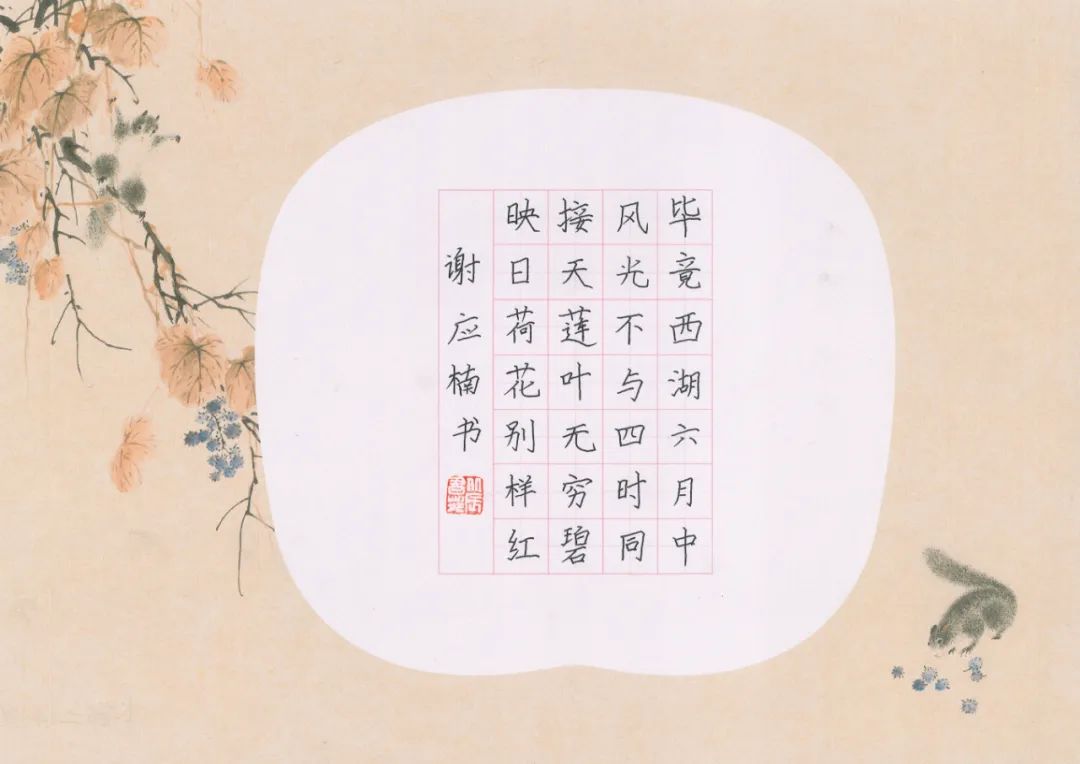 毕竟西湖六月中
风光不与四时同
接天莲叶无穷碧
映日荷花别样红
谢应楠书